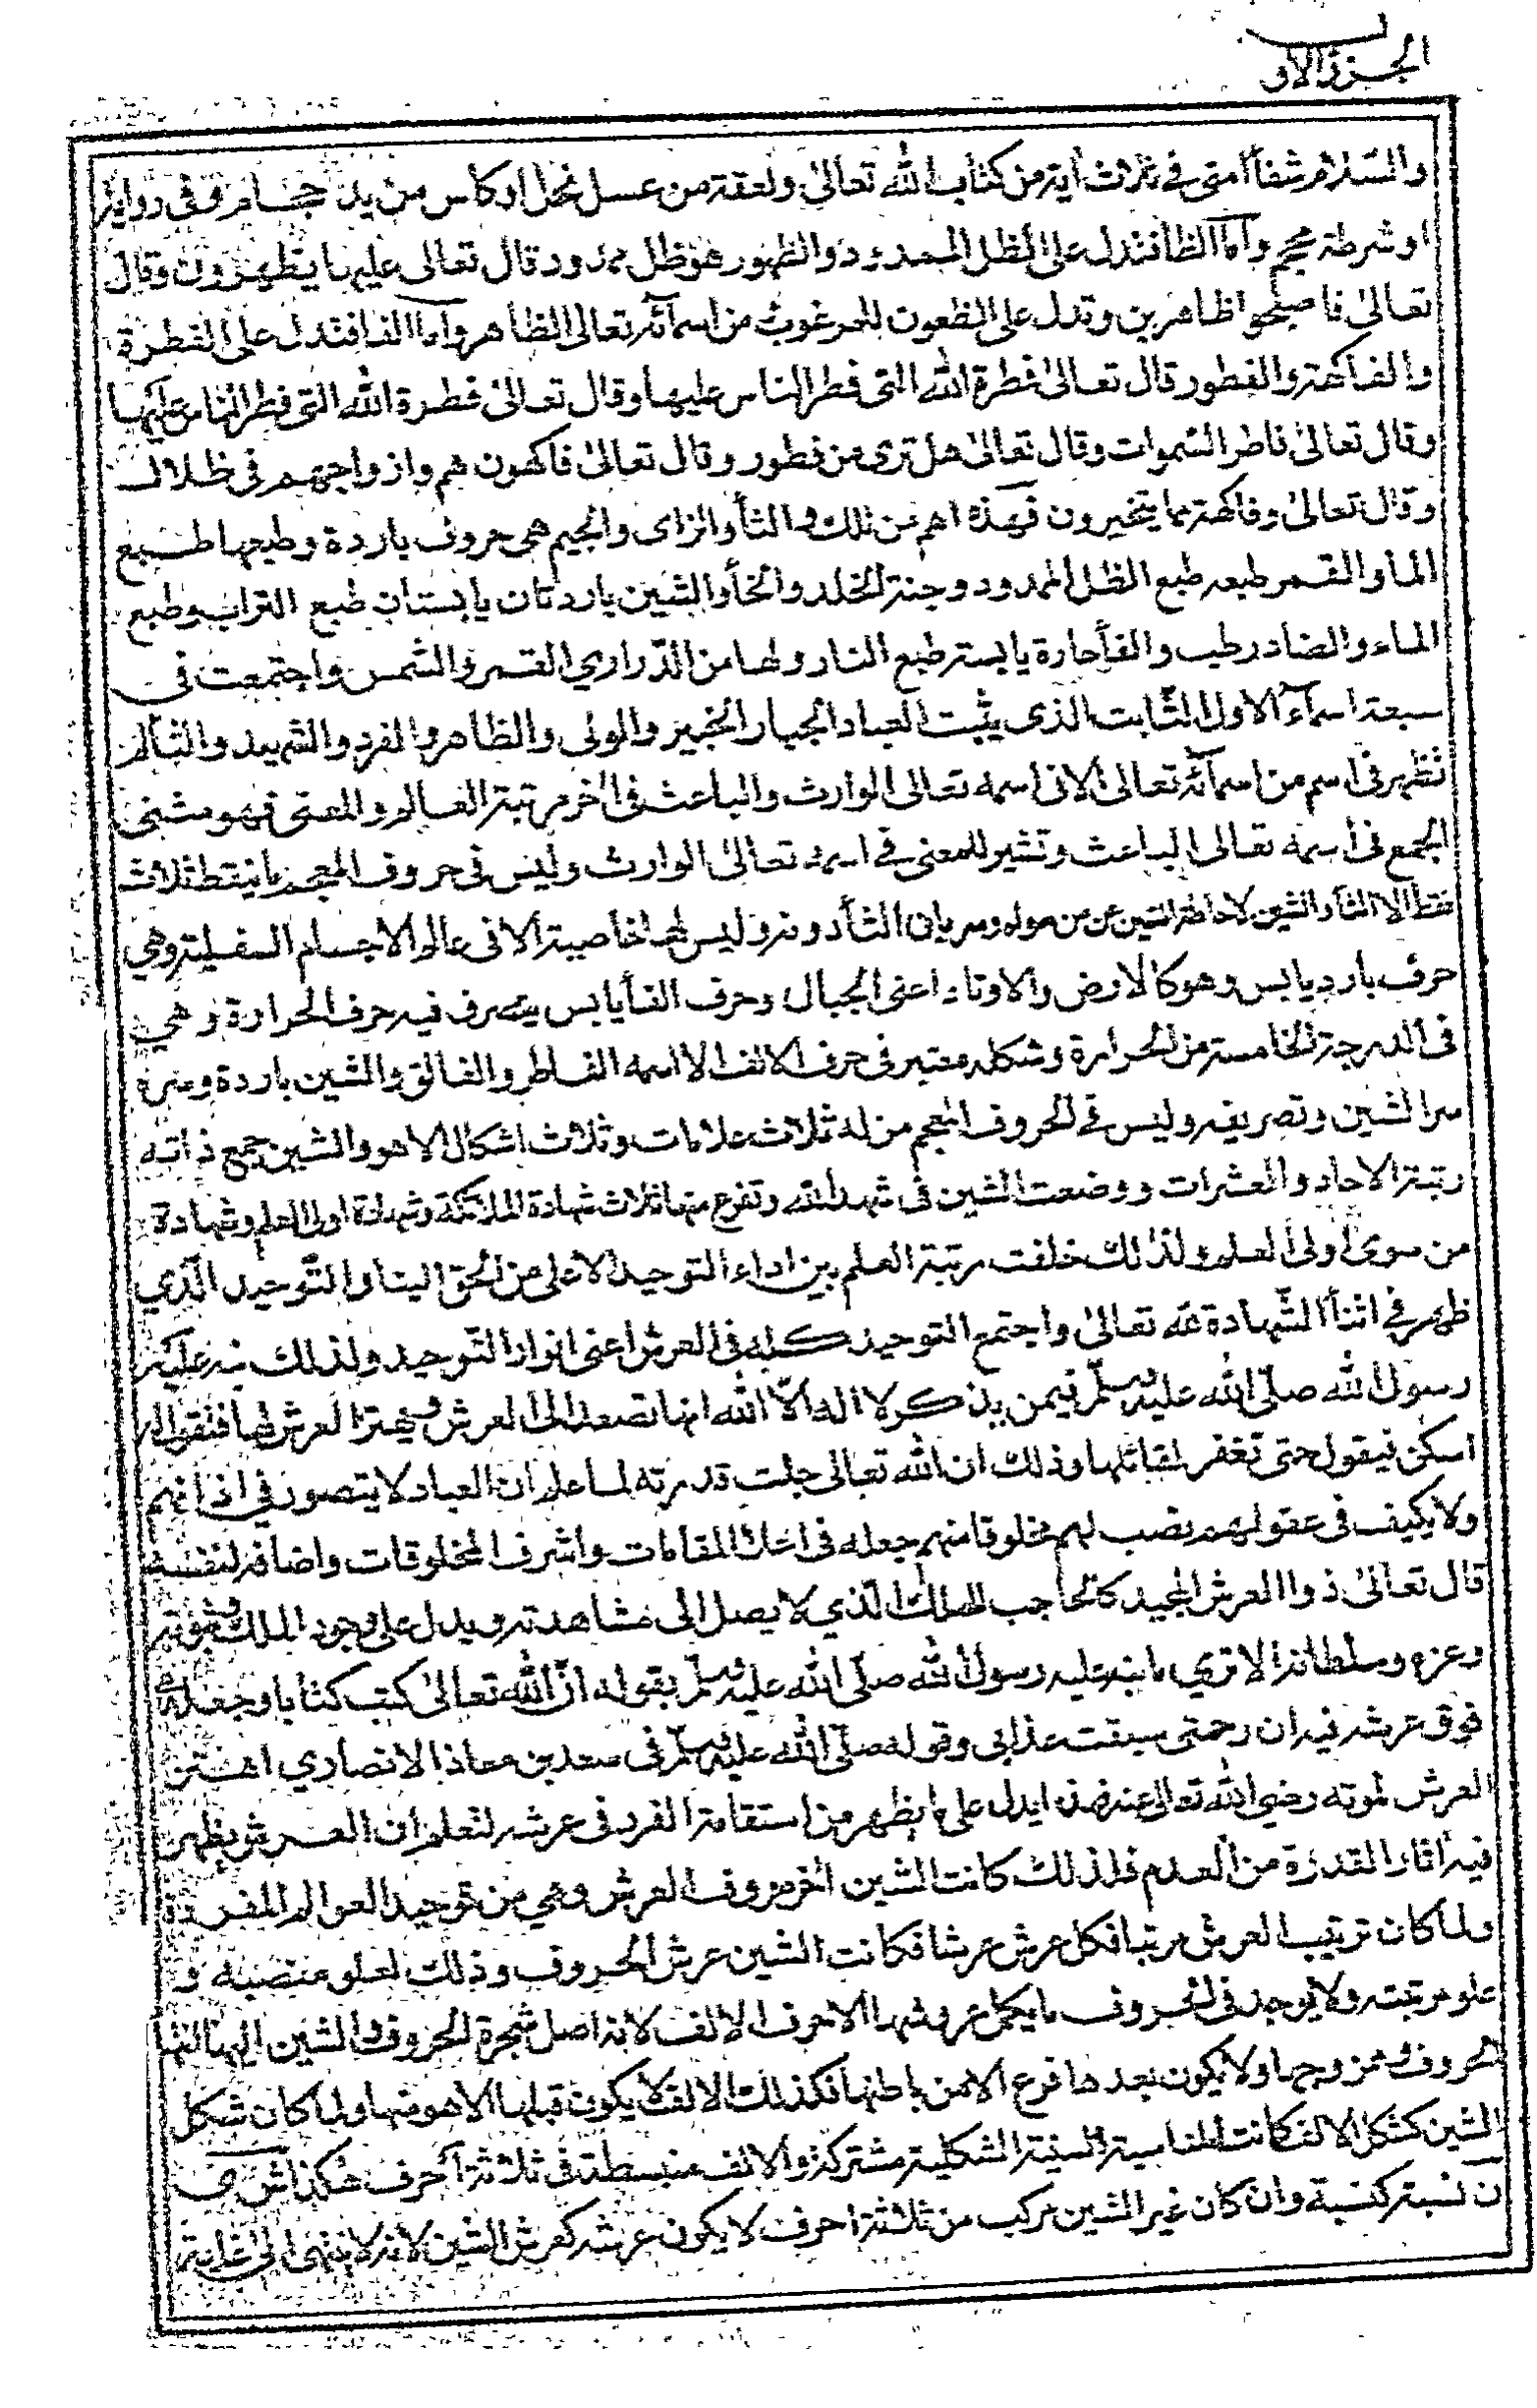 الجزؤ الاول
والسلام شفأ امتى في ثلاث اية من كتاب الله تعالى ولعقة من عسل نحل او كاس من يد حجام وفى رواية
او شرطة محجم واما الظا فتدل على الظل الممدود والظهور فهو ظل ممدود قال تعالى عليها يظهرون وقال
تعالى فاصبحوا ظاهرين وتدل على الظعون للمرغوب من اسمآئه تعالى الظاهر واما الفا فتدل على الفطرة
والفاكهة والفطور قال تعالى فطرة الله التى فطر الناس عليها وقال تعالى فطرة الله التى فطر الناس عليها
وقال تعالى فاطر السموات وقال تعالى هل ترى من فطور وقال تعالى فاكهون هم وازواجهم فى ظلال
وقال تعالى وفاكهة مما يتخيرون فهذه اهم من تلك والثأ والزاى والجيم هى حروف باردة وطبعها طبع
الما والقمر طبعه طبع الظل الممدود وجنة الخلد والخأ والشين باردتان يابستان طبع التراب وطبع
الماء والضاد رطب والفأ حارة يابسة طبع النار ولها من الدراري القمر والشمس واجتمعت فى
سبعة اسمآء الاول الثابت الذى يثبت العباد الجبار الخبير والولى والظاهر والفرد والشهيد والثألم
تظهر فى اسم من اسمآئه تعالى الا فى اسمه تعالى الوارث والباعث فى اخر مرتبة العالم والمعنى فهو مشنى
الجمع فى اسمه تعالى الباعث وتشير للمعنى في اسمه تعالى الوارث وليس فى حروف المعجم ما ينقط ثلاث
نقط الا الثأ والشين لاحاطة الشين عن من سوله وسريان الثأ دونه وليس لها خاصية الا فى عالم الاجسام السفلية وهي
حرف بارد يابس وهو كالارض والاوتاد اعنى الجبال وحرف الفأ يابس يتصرف فيه حرف الحرارة وهي
فى الدرجة الخامسة من الحرارة وشكله معتبر فى حرف الالف الا اسمه الفاطر والفالق والشين باردة وسره
سر الشين وتصريفه وليس في الحروف المعجم من له ثلاث علامات وثلاث اشكال الا هو والشين جمع ذاته
رتبة الاحاد والعشرات ووضعت الشين فى شهد الله وتفرع منها ثلاث شهادة الملائكة وشهادة اولى العلم وشهادة
من سوى اولى العلم ولذلك خلفت رتبة العلم بين اداء التوحيد الاعلى من الحق الينا والتوحيد الذي
ظهر في اثنأ الشهادة لله تعالى واجتمع التوحيد كله فى العرش اعنى انوار التوحيد ولذلك نبه عليه
رسول الله صلى الله عليه وسلم فيمن يذكر لا اله الا الله انها تصعد الى العرش ويهتز العرش لها فتقول له
اسكن فيقول حتى تغفر لقائلها وذلك ان الله تعالى جلت قدرته لما علم ان العباد لا يتصور في اذانهم
ولا يكيف فى عقولهم نصب لهم مخلوقا منهم جعله فى اعلا المقامات واشرف المخلوقات واضافه لنفسه
قال تعالى ذوا العرش المجيد كالحاجب للملك الذي لا يصل الى مشاهدته ويدل على وجود الملك وثبوته
وعزه وسلطانه الا تري ما نبه عليه رسول الله صلى الله عليه وسلم بقوله ان الله تعالى كتب كتابا وجعله
فوق عرشه فيه ان رحمتى سبقت عذابى وقوله صلى الله عليه وسلم فى سعد بن معاذ الانصاري اهتز
العرش لموته رضي الله تعالى عنه فهذا يدل على ما يظهر من استقامة الفرد فى عرشه لتعلم ان العرش يظهر
فيه اثار القدرة من العدم فلذلك كانت الشين اخر حروف العرش وهي من توحيد العوالم المفردة
ولما كان ترتيب العرش مرتبا فكل عرش عرشا فكانت الشين عرش الحروف وذلك لعلو منصبه و
علو مرتبته ولا يوجد فى الحروف ما يحكى عروشها الا حرف الالف لانه اصل شجرة الحروف والشين اليها انتها
الحروف وممزوجها ولا يكون بعدها فرع الا من باطنها فكذلك الالف لا يكون قبلها الا هو منها ولما كان شكل
الشين كشكل الالف كانت المناسبة السنية الشكلية مشتركة والالف منبسطة فى ثلاثة احرف هكذا ش ى
ن نسبة كنسبة وان كان غير الشين مركب من ثلاثة احرف لا يكون عرشه كعرش الشين لانه لا ينتهى الى غاية